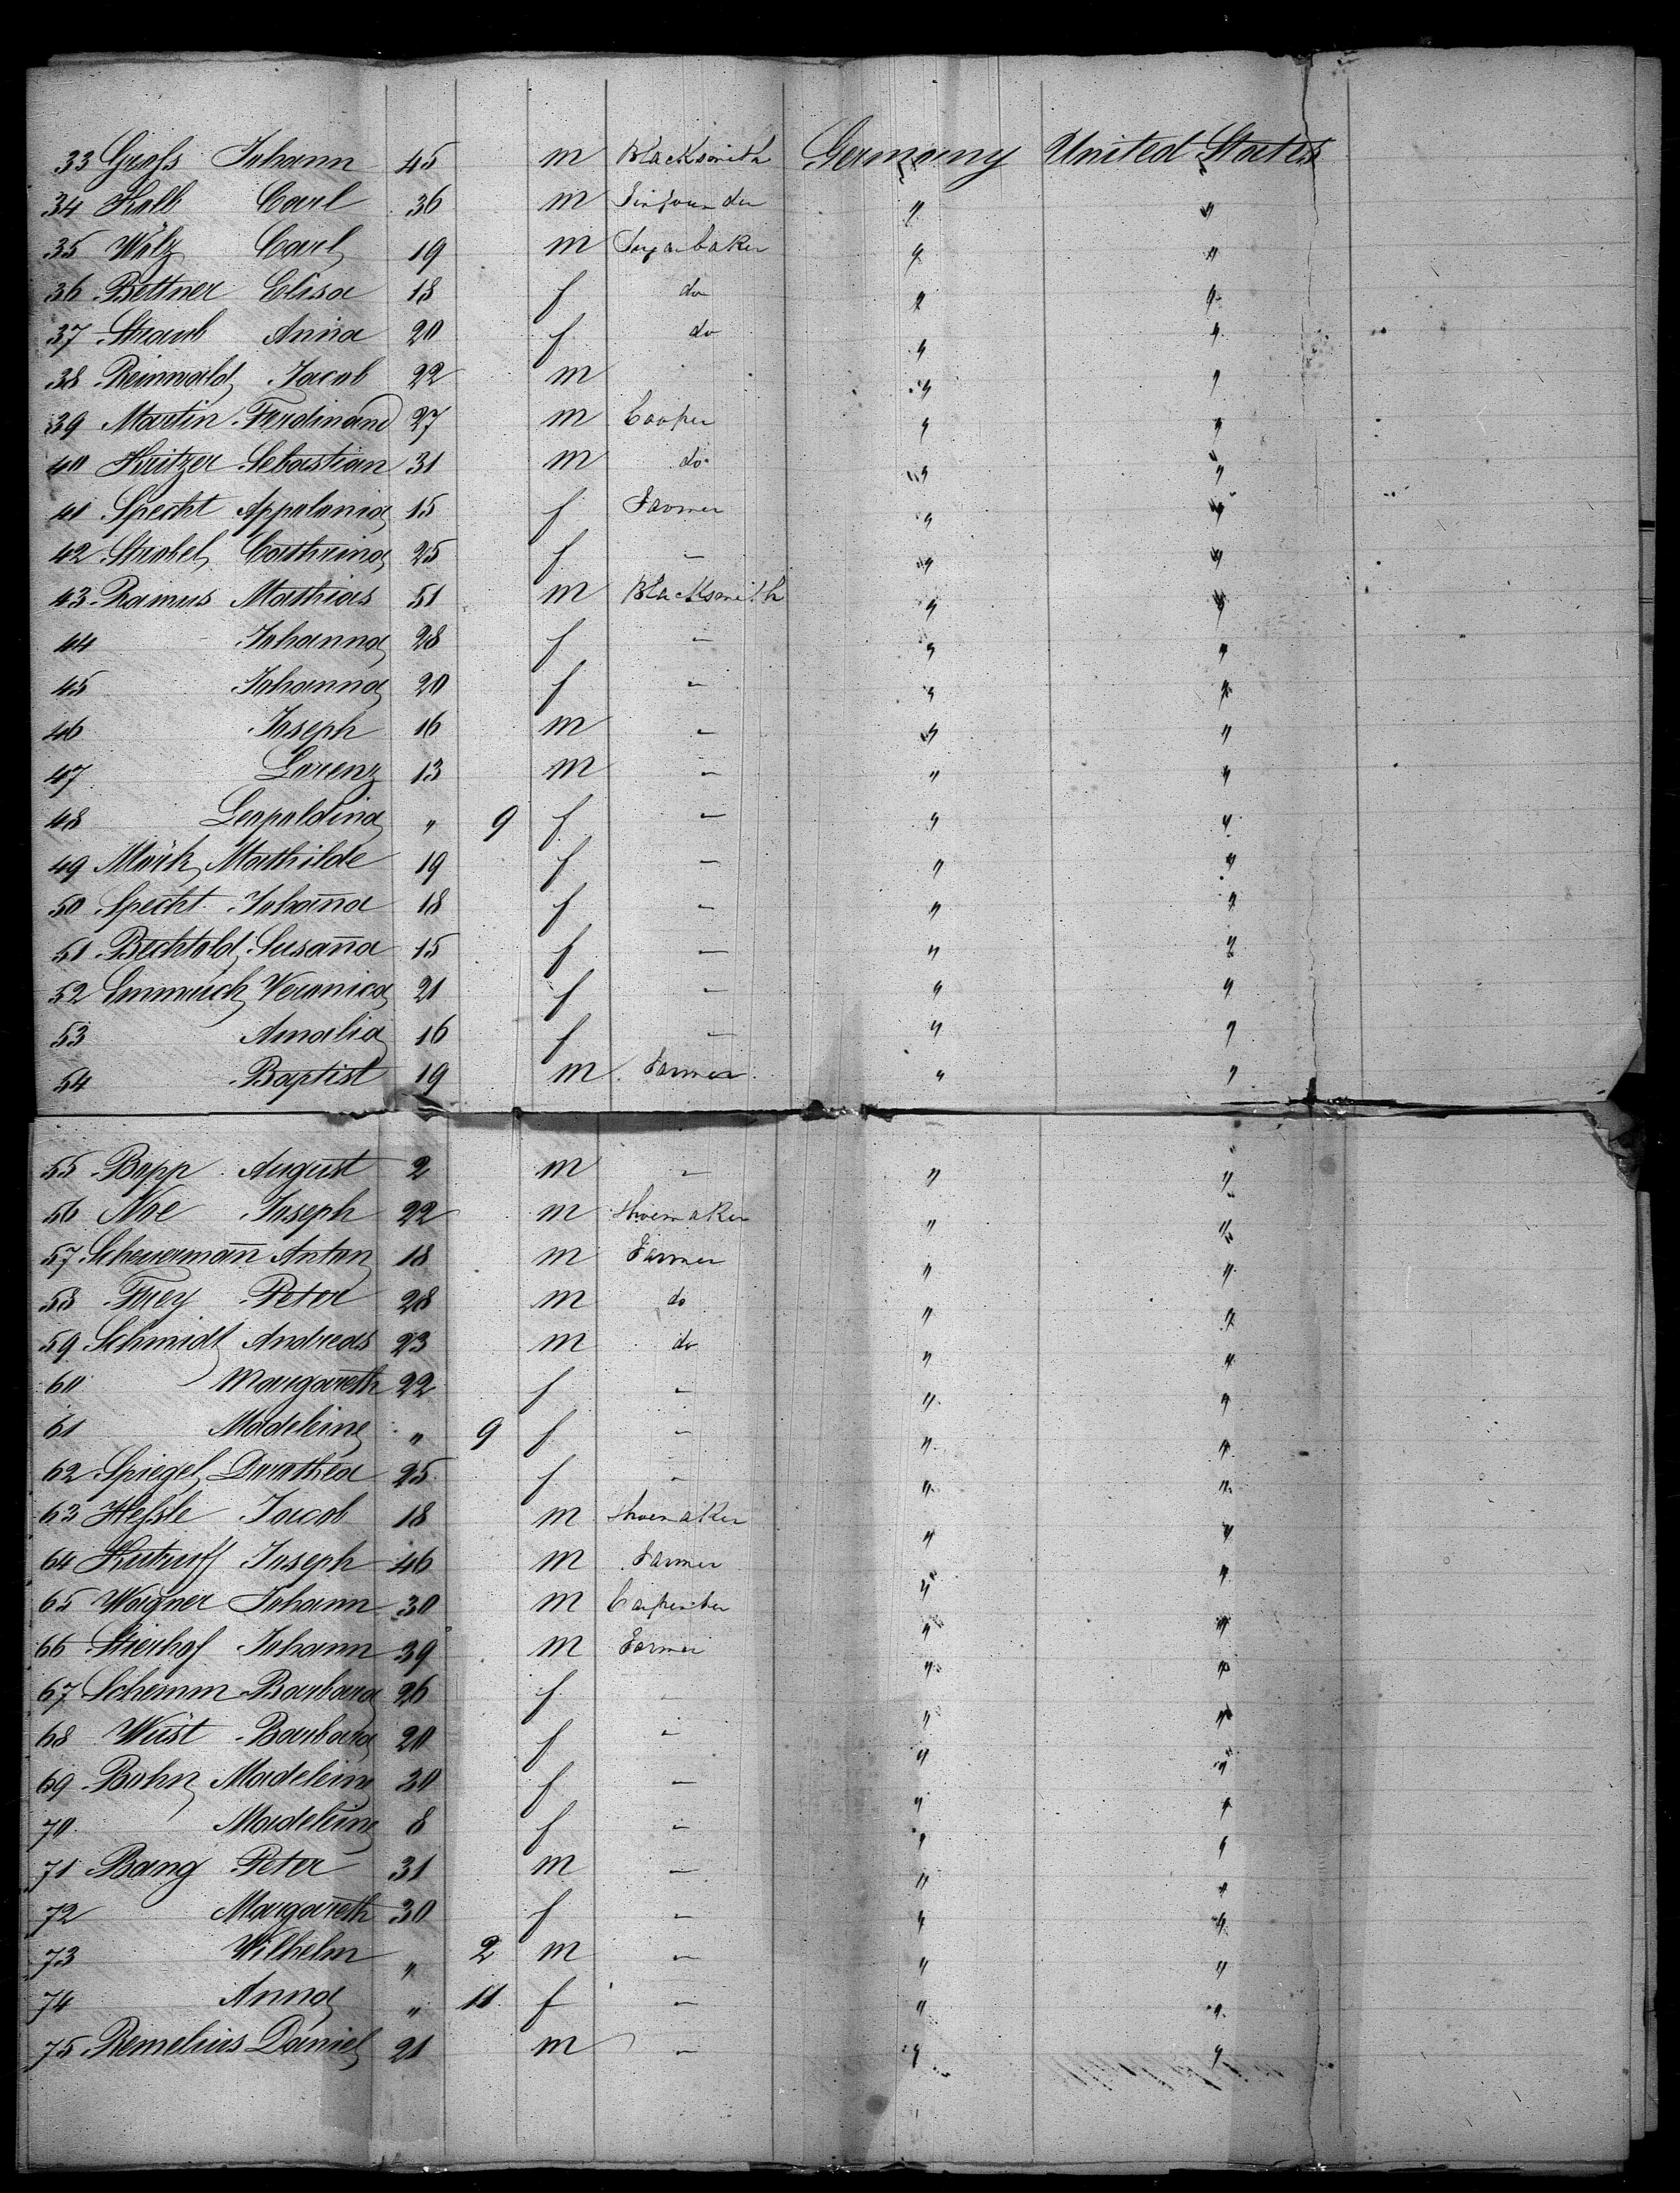 33 Groſs Johann 45 m Blacksmith Germany United States
34 Kolb Carl 36 m " "
35 Wölz Carl 19 m Sugarbaker " "
36 Bettner Elisa 18 f do " "
37 Straub Anna 20 f do " "
38 Reinwald Jacob 22 m " "
39 Martin Ferdinand 27 m Cooper " "
40 Kritzer Sebastian 31 m do " "
41 Specht Appolonia 15 f Farmer " "
42 Strobel Cathrina 25 f - " "
43 Ramus Mathias 51 m Blacksmith " "
44 Johanna 28 f - " "
45 Johanna 20 f - " "
46 Joseph 16 m - " "
47 Lorenz 13 m - " "
48 Leopoldina " 9 f - " "
49 Märk Mathilde 19 f - " "
50 Specht Johan̄a 18 f - " "
51 Bechtold Susan̄a 15 f - " "
52 Emmerich Veronica 21 f - " "
53 Amalia 16 f - " "
54 Baptist 19 m Farmer " "
55 Bopp August 2 m - " "
56 Noe Joseph 22 m Shoemaker " "
57 Scheuerman̄ Anton 18 m Farmer " "
58 Frey Peter 28 m do " "
59 Schmidt Andreas 23 m do " "
60 Margareth 22 f - " "
61 Madeleine " 9 f - " "
62 Spiegel Dorothea 25 f - " "
63 Heſsle Jacob 18 m Shoemaker " "
64 Kutruff Joseph 46 m Farmer " "
65 Wagner Johann 30 m Carpenter " "
66 Stierhof Johann 39 m Farmer " "
67 Schemm Barbara 26 f - " "
68 Wüst Barbara 20 f - " "
69 Bohn Madeleine 30 f - " "
70 Madeleine 8 f - " "
71 Bang Peter 31 m - " "
72 Margareth 30 f - " "
73 Wilhelm " 2 m - " "
74 Anna " 11 f - " "
75 Remelius Daniel 21 m - " "